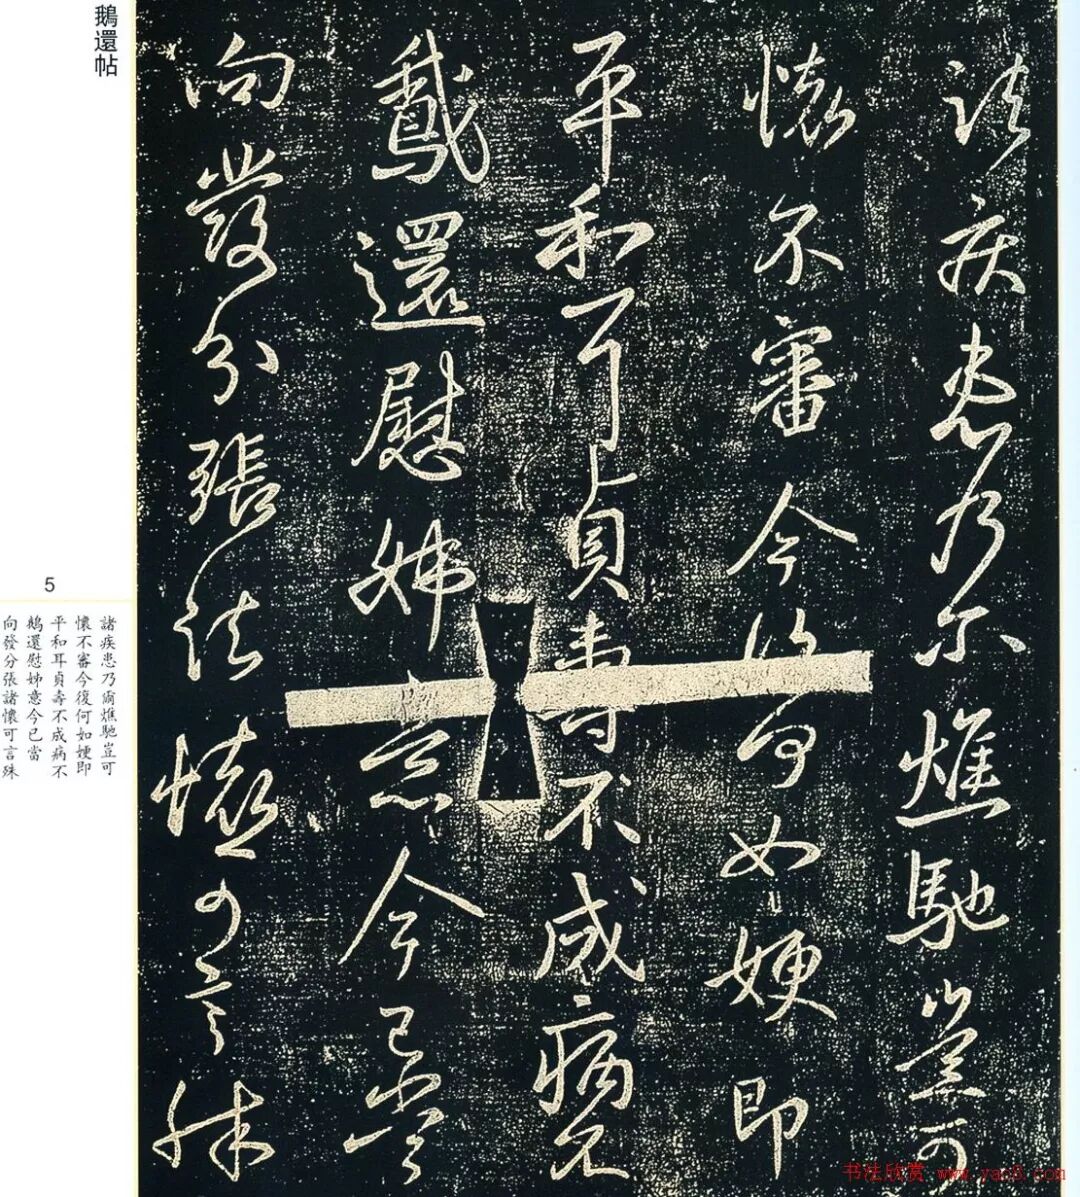 諸疾患乃尔燋馳豈可
懷不審今復何如㛐即
平和耳貞壽不成病不
鵝還慰姊意今已當
向發分張諸懷可言殊
鵝還帖
5
諸疾患乃爾燋馳豈可
懷不審今復何如㛐即
平和耳貞壽不成病不
鵝還慰姊意今已當
向發分張諸懷可言殊
书法欣赏 www.yac8.com